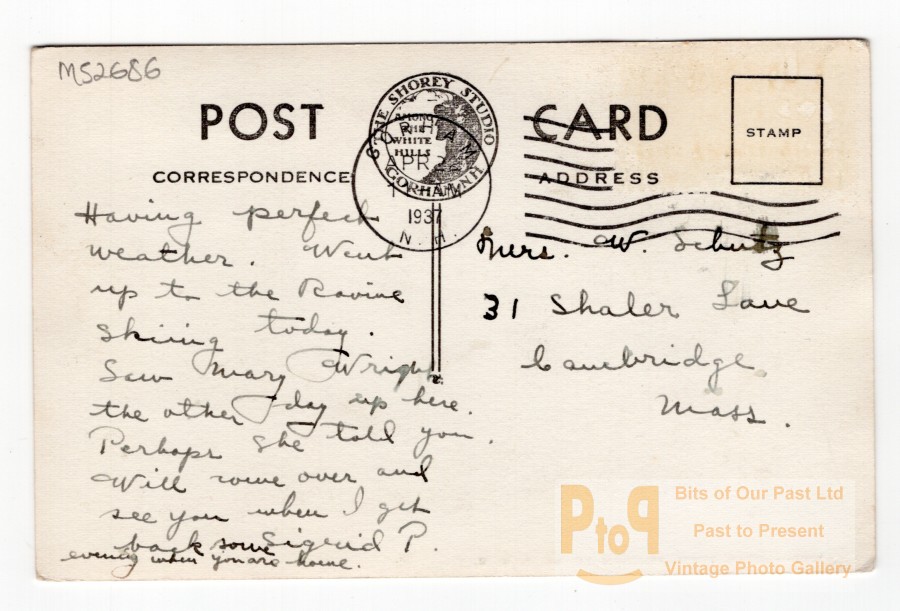 MS2686
POST CARD
THE SHOREY STUDIO
AMONG
THE
WHITE
HILLS
GORHAM NH
GORHAM
APR
1937
N.H.
STAMP
CORRESPONDENCE
ADDRESS
Having perfect
weather. Went
up to the Ravine
skiing today.
Saw Mary Wright
the other day up here.
Perhaps she told you.
Will come over and
see you when I get
back some
evening when you are home.
Sigrid P.
Mrs. W. Schutz
31 Shaler Lane
Cambridge
Mass.
PtoP
Bits of Our Past Ltd
Past to Present
Vintage Photo Gallery